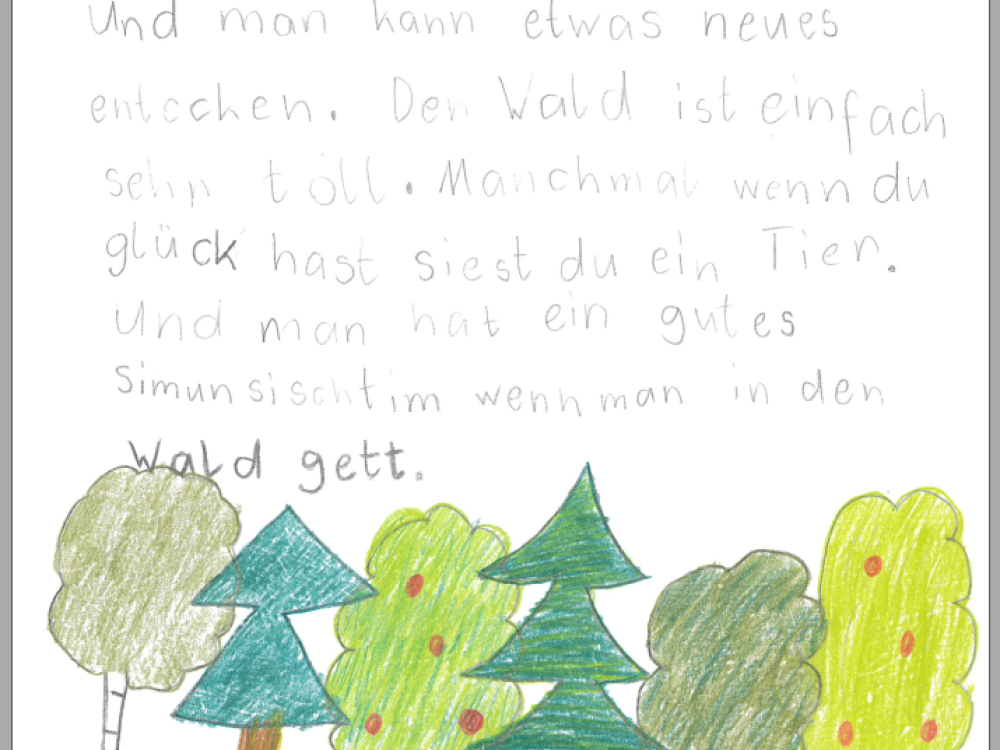 Und man kann etwas neues
entcchen. Der Wald ist einfach
sehr toll. Manchmal wenn du
glück hast siest du ein Tier.
Und man hat ein gutes
simunsischtim wenn man in den
Wald gett.